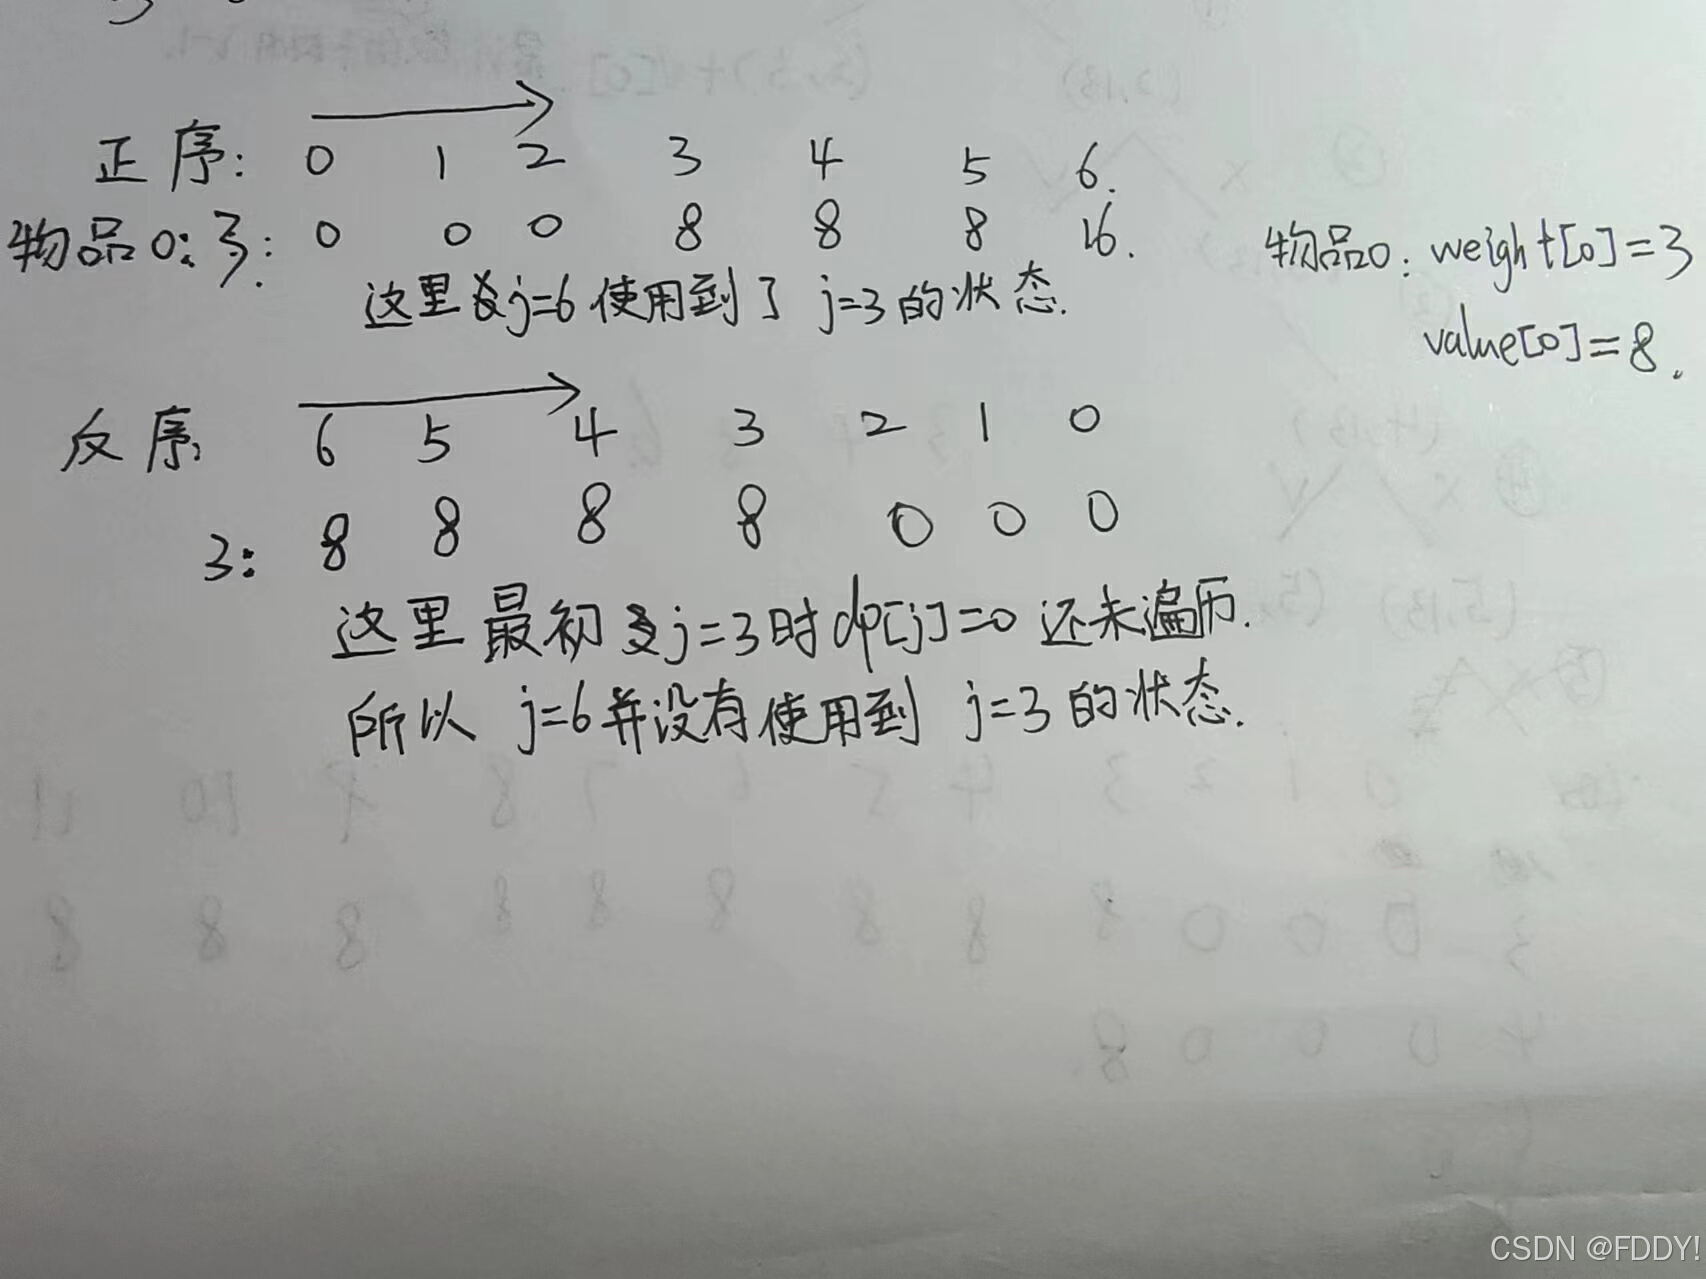 正序: 0 1 2 3 4 5 6.
物品0: 3: 0 0 0 8 8 8 16.
这里 j=6 使用到了 j=3 的状态.
物品0: weight[0]=3
value[0]=8.
反序: 6 5 4 3 2 1 0
3: 8 8 8 8 0 0 0
这里最初 j=3时 dp[j]=0 还未遍历.
所以 j=6并没有使用到 j=3 的状态.
CSDN @FDDY!